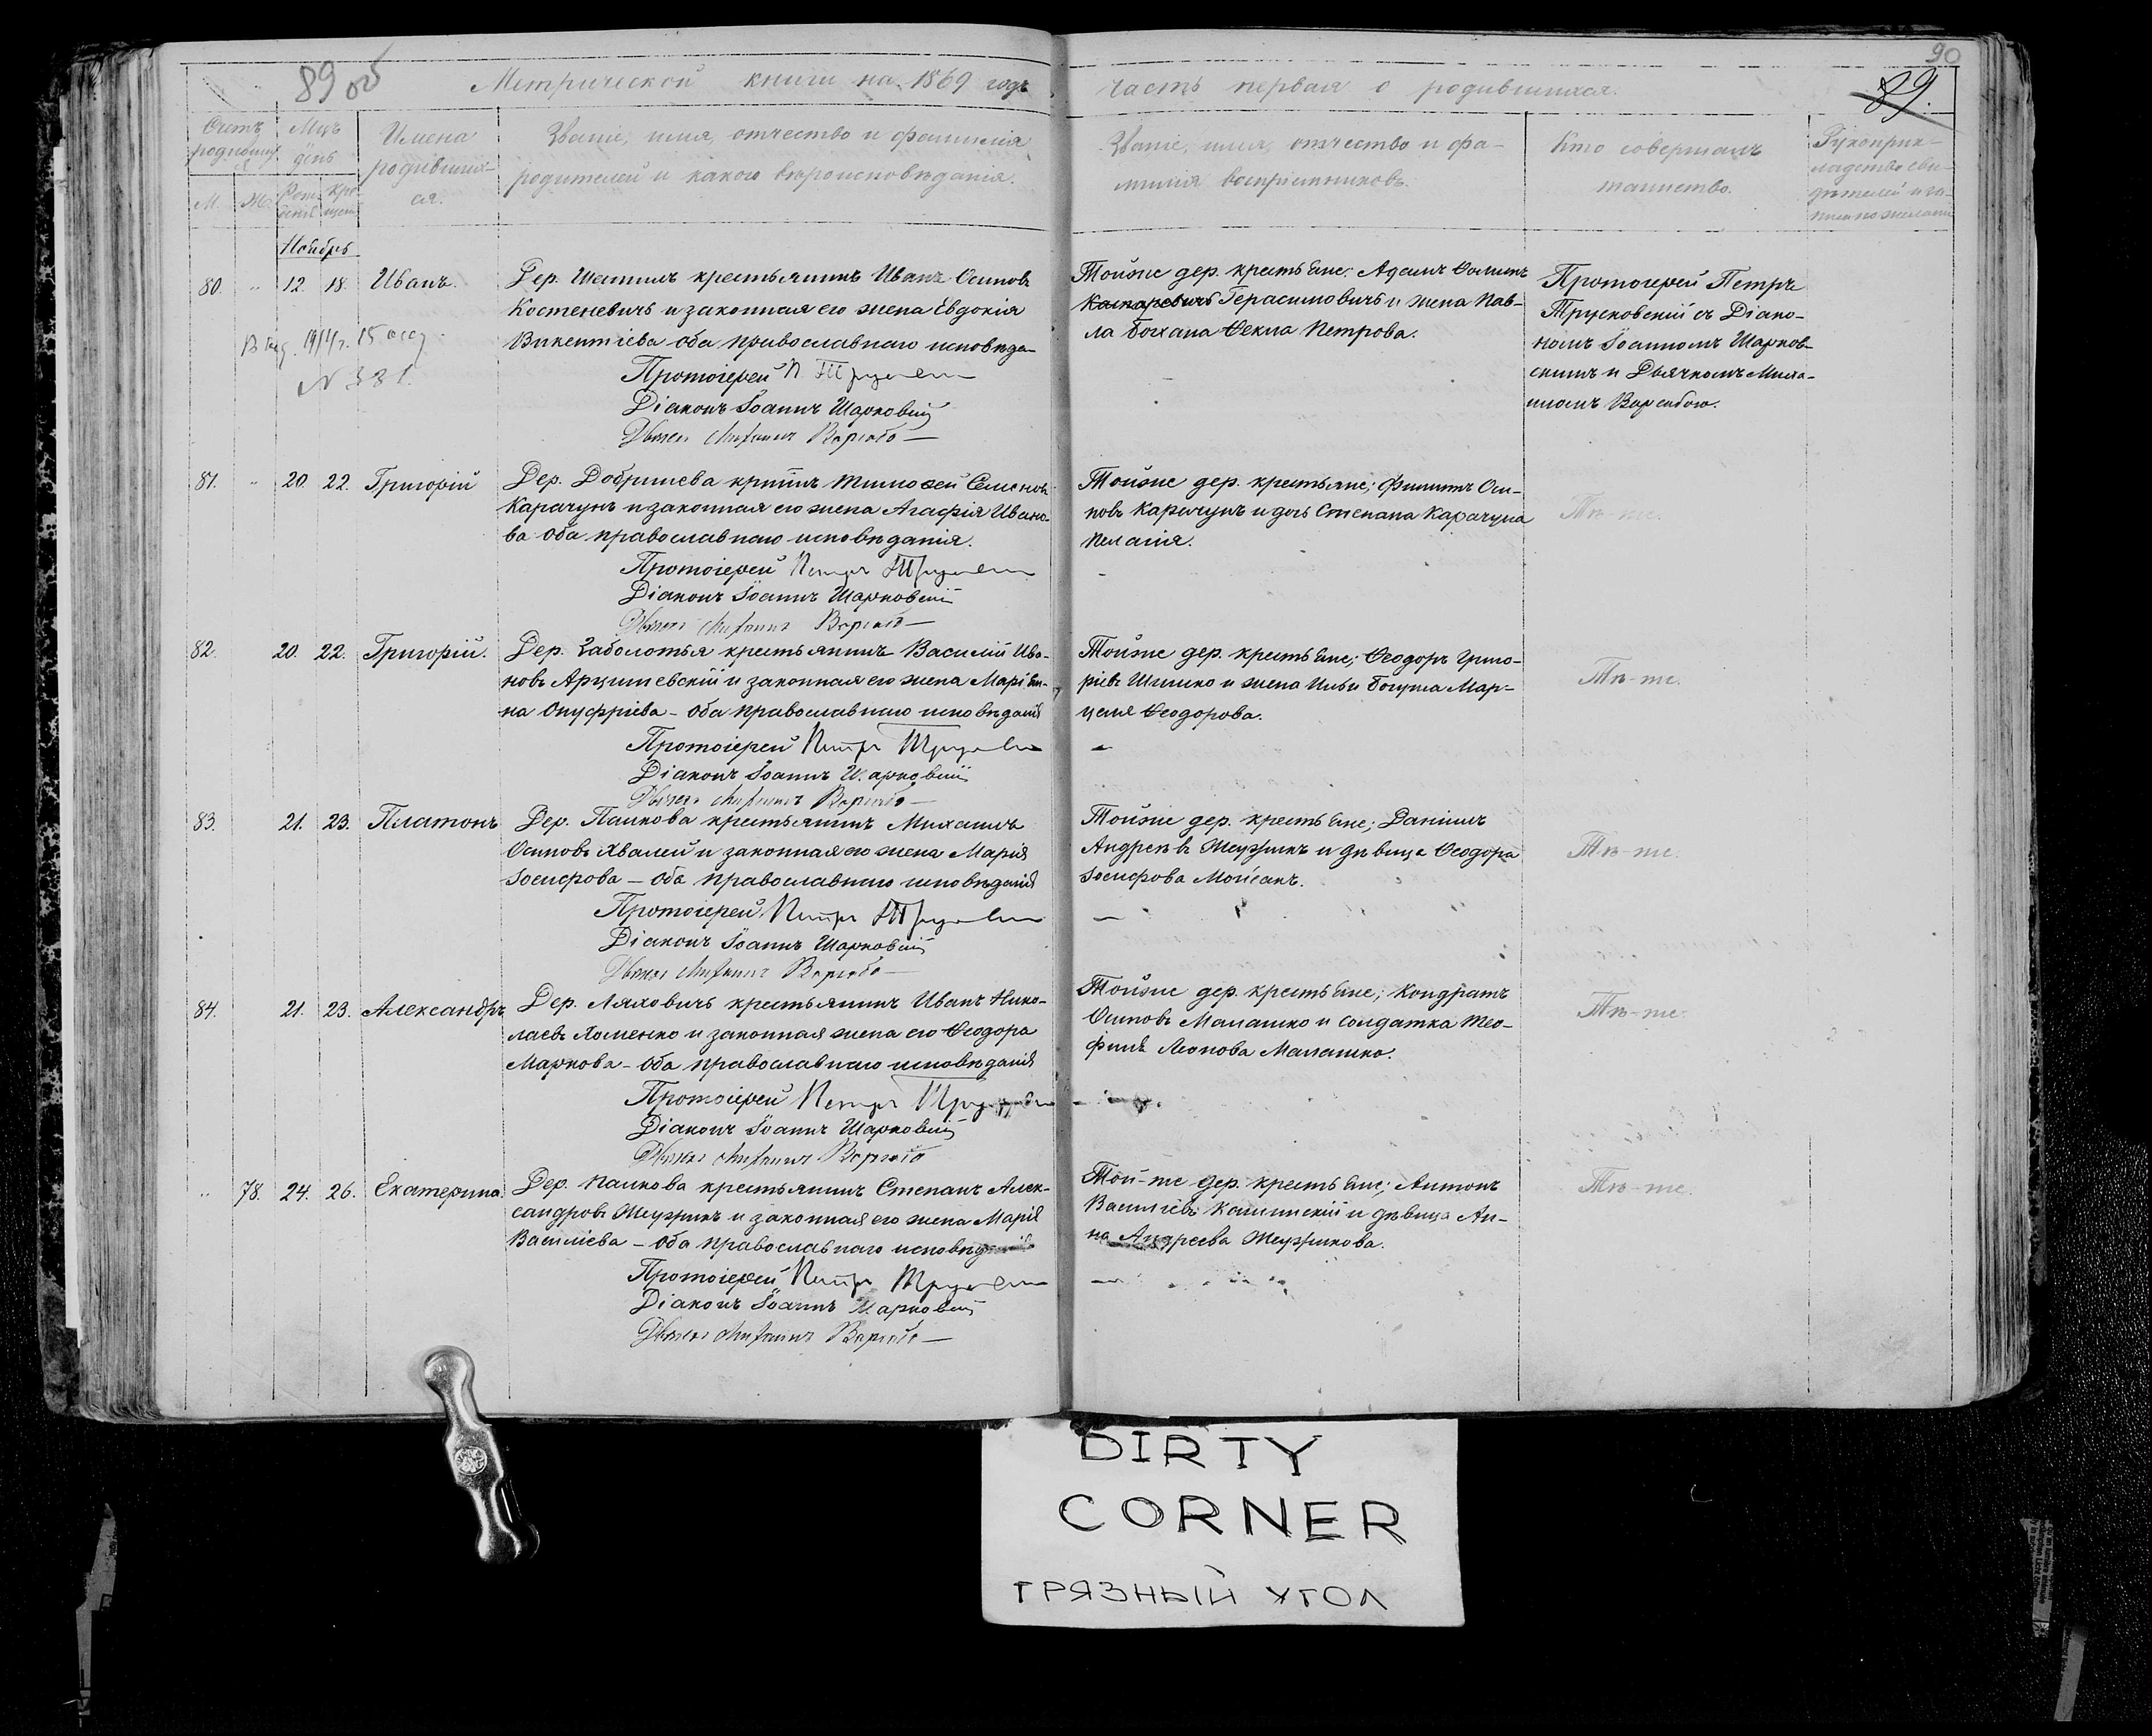 89 об
Метрической книги на 1869 годъ
часть первая о родившихся.
90
89.
Счетъ родившихся
М.
Ж.
Мцъ день
Рож-
денія
Кре-
щенія
Имена
родивших-
ся.
Званіе, имя, отчество и фамилія
родителей и какого вѣроисповѣданія.
Званіе, имя, отчество и фа-
милія воспріемниковъ.
Кто совершалъ
таинство.
Рукоприк-
ладство сви-
дѣтелей и за-
писи по желанію
Ноябрь
80. " 12. 18. Иванъ.
Дер. крестьянинъ Иванъ Осиповъ
Костеневичъ и законная его жена Евдокія
Викентіева оба православнаго исповѣда-
Протоіерей П.
Діаконъ Іоаннъ Шарковскій
Дьячекъ Михаилъ
1914 г. 15
N 381.
Тойже дер. крестьяне: Адамъ Ѳоминъ
Герасимовичъ и жена Пав-
ла Ѳекла Петрова.
Протоіерей Петръ
Трусковскій съ Діако-
номъ Іоанномъ Шарков-
скимъ и Дьячкомъ Миха-
иломъ
81. " 20. 22. Григорій
Дер. Добришева Тимоѳей Семеновъ
Карачунъ и законная его жена Агафія Ивано-
ва оба православнаго исповѣданія.
Протоіерей Петръ
Діаконъ Іоаннъ Шарковскій
Дьячекъ Михаилъ
Тойже дер. крестьяне; Филиппъ Оси-
повъ Карачунъ и дочь Степана Карачуна
Пелагія.
Тѣ-же.
82. 20. 22. Григорій.
Дер. Заболотья крестьянинъ Василій Ива-
новъ Арцишевскій и законная его жена Маріан-
на Онуфріева - оба православнаго исповѣданія
Протоіерей Петръ
Діаконъ Іоаннъ Шарковскій
Дьячекъ Михаилъ
Тойже дер. крестьяне; Ѳеодоръ Григо-
ріевъ Шишко и жена Ильи Богуша Мар-
целя Ѳеодорова.
Тѣ-же.
83. 21. 23. Платонъ
Дер. Папкова крестьянинъ Михаилъ
Осиповъ Хвалей и законная его жена Марія
Іосифова - оба православнаго исповѣданія
Протоіерей Петръ
Діаконъ Іоаннъ Шарковскій
Дьячекъ Михаилъ
Тойже дер. крестьяне; Даніилъ
Андреевъ и дѣвица Ѳеодора
Іосифова
Тѣ-же.
84. 21. 23. Александръ
Дер. Ляховичъ крестьянинъ Иванъ Нико-
лаевъ Хоменко и законная жена его Ѳеодора
Маркова - оба православнаго исповѣданія
Протоіерей Петръ
Діаконъ Іоаннъ Шарковскій
Дьячекъ Михаилъ
Тойже дер. крестьяне; Кондратъ
Осиповъ Малашко и солдатка Тео-
филя Леонова Малашко.
Тѣ-же.
" 78. 24. 26. Екатерина.
Дер. Папкова крестьянинъ Степанъ Алек-
сандровъ и законная его жена Марія
Василіева - оба православнаго исповѣданія
Протоіерей Петръ
Діаконъ Іоаннъ Шарковскій
Дьячекъ Михаилъ
Той-же дер. крестьяне; Антонъ
Василіевъ и дѣвица Ан-
на Андреева
Тѣ-же.
DIRTY
CORNER
ГРЯЗНЫЙ УГОЛ